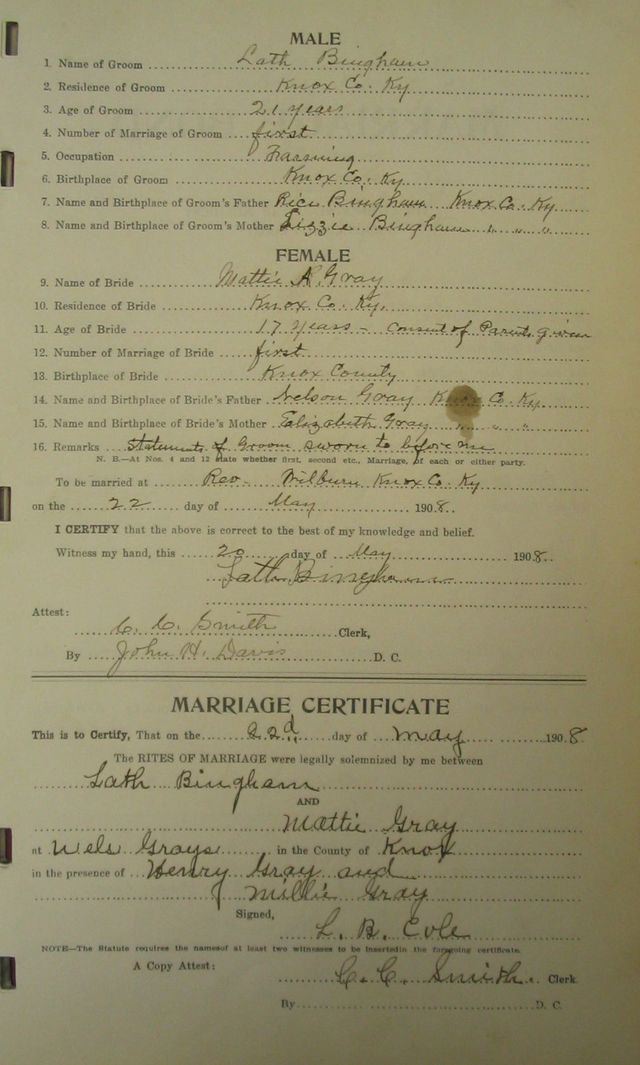 MALE
1. Name of Groom Lath Bingham
2. Residence of Groom Knox Co. Ky
3. Age of Groom 21 years
4. Number of Marriage of Groom first
5. Occupation Farming
6. Birthplace of Groom Knox Co. Ky
7. Name and Birthplace of Groom's Father Rice Bingham Knox Co. Ky
8. Name and Birthplace of Groom's Mother Lizzie Bingham " " "
FEMALE
9. Name of Bride Mattie A. Gray
10. Residence of Bride Knox Co. Ky.
11. Age of Bride 17 years - Consent of Parents given
12. Number of Marriage of Bride first
13. Birthplace of Bride Knox County
14. Name and Birthplace of Bride's Father Nelson Gray Knox Co. Ky
15. Name and Birthplace of Bride's Mother Elizabeth Gray " " "
16. Remarks Statements of Groom sworn to before me
N. B.—At Nos. 4 and 12 state whether first, second etc., Marriage, of each or either party.
To be married at Rev. Wilburn Knox Co. Ky
on the 22 day of May 1908
I CERTIFY that the above is correct to the best of my knowledge and belief.
Witness my hand, this 20 day of May 1908
Lath Bingham
Attest:
C. C. Smith Clerk,
By John H. Davis D. C.
MARRIAGE CERTIFICATE
This is to Certify, That on the 22d day of May 1908
The RITES OF MARRIAGE were legally solemnized by me between
Lath Bingham
AND
Mattie Gray
at Nels Grays in the County of Knox
in the presence of Henry Gray and
Millie Gray
Signed,
L. B. Cole
NOTE—The Statute requires the namesof at least two witnesses to be insertedin the foregoing certificate.
A Copy Attest:
C. C. Smith. Clerk
By D. C.